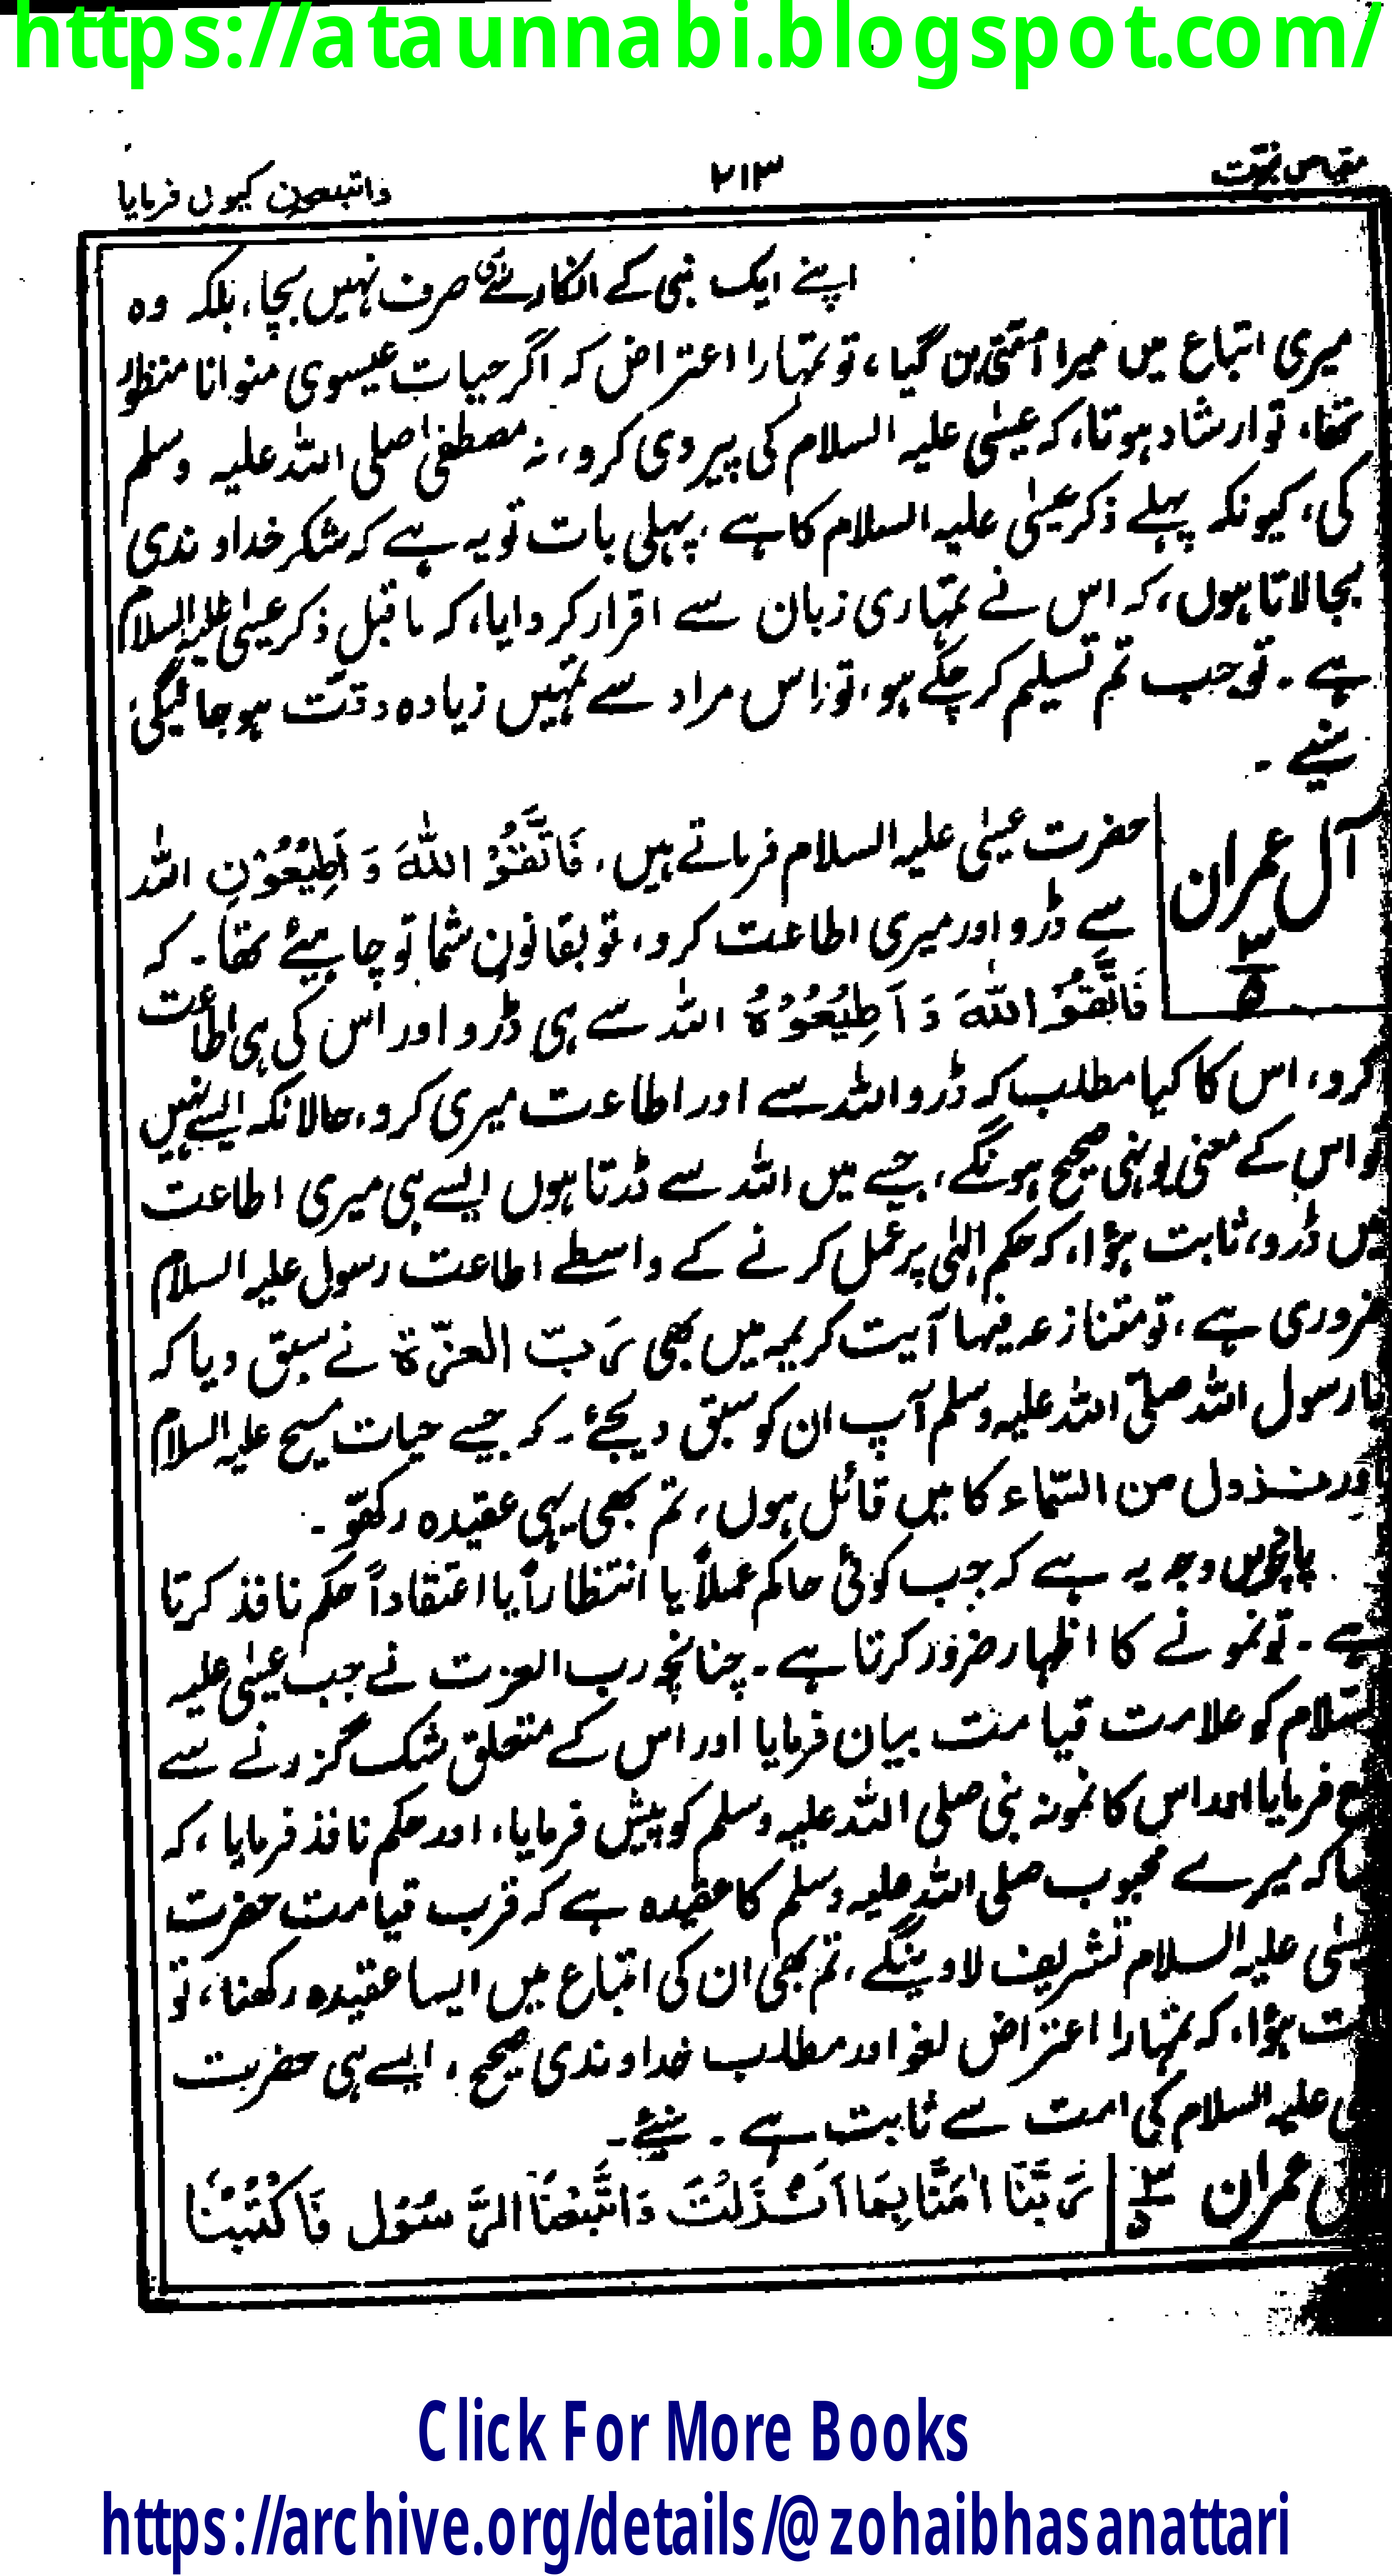 https://ataunnabi.blogspot.com/
مقیاس نبوت ۲۱۳ واتبعون کیوں فرمایا
اپنے ایک نبی کے انکار سے ہی صرف نہیں بچا، بلکہ وہ
میری اتباع میں میرا اُمتی بن گیا، تو تمہارا اعتراض کہ اگر حیات عیسوی منوانا منظور
تھا، تو ارشاد ہوتا، کہ عیسٰی علیہ السلام کی پیروی کرو، نہ مصطفیٰ صلی اللہ علیہ وسلم
کی، کیونکہ پہلے ذکر عیسٰی علیہ السلام کا ہے، پہلی بات تو یہ ہے کہ شکر خداوندی
بجا لاتا ہوں، کہ اس نے تمہاری زبان سے اقرار کروایا، کہ ماقبل ذکر عیسٰی علیہ السلام
ہے ۔ تو جب تم تسلیم کر چکے ہو، تو اس مراد سے تمہیں زیادہ دقت ہو جائیگی،
سنیے ۔
آل عمران ۳/۵ حضرت عیسٰی علیہ السلام فرماتے ہیں، فَاتَّقُوْ اللّٰهَ وَ اَطِیْعُوْنِ اللہ
سے ڈرو اور میری اطاعت کرو، تو بقانون شما تو چاہیئے تھا ۔ کہ
فَاتَّقُوْ اللّٰهَ وَ اَطِیْعُوْهُ اللہ سے ہی ڈرو اور اس کی ہی اطاعت
کرو، اس کا کیا مطلب کہ ڈرو اللہ سے اور اطاعت میری کرو، حالانکہ ایسے نہیں
تو اس کے معنی یونہی صحیح ہونگے، جیسے میں اللہ سے ڈرتا ہوں ایسے ہی میری اطاعت
میں ڈرو، ثابت ہؤا، کہ حکم الہٰی پر عمل کرنے کے واسطے اطاعت رسول علیہ السلام
ضروری ہے، تو متنازعہ فیہا آیت کریمہ میں بھی رَبّ العزّة نے سبق دیا کہ
یا رسول اللہ صلّی اللہ علیہ وسلم آپ ان کو سبق دیجئے ۔ کہ جیسے حیات مسیح علیہ السلام
اور نزول من السّماء کا میں قائل ہوں، تم بھی یہی عقیدہ رکھو ۔
پانچویں وجہ یہ ہے کہ جب کوئی حاکم عملاً یا انتظاراً یا اعتقاداً حکم نافذ کرتا
ہے ۔ تو نمونے کا اظہار ضرور کرتا ہے ۔ چنانچہ رب العزت نے جب عیسٰی علیہ
السّلام کو علامت قیامت بیان فرمایا اور اس کے متعلق شک گزرنے سے
منع فرمایا اور اس کا نمونہ نبی صلی اللہ علیہ وسلم کو پیش فرمایا، اور حکم نافذ فرمایا، کہ
جیسا کہ میرے محبوب صلی اللہ علیہ وسلم کا عقیدہ ہے کہ قرب قیامت حضرت
عیسٰی علیہ السلام تشریف لاوینگے، تم بھی ان کی اتباع میں ایسا عقیدہ رکھنا، تو
ثابت ہؤا، کہ تمہارا اعتراض لغو اور مطلب خداوندی صحیح، ایسے ہی حضرت
علیہ السلام کی امت سے ثابت ہے ۔ سنیئے ۔
آل عمران ۳/۵ رَبَّنَا اٰمَنَّا بِمَا اَنْزَلْتَ وَاتَّبَعْنَا الرَّسُوْلَ فَاكْتُبْنَا
Click For More Books
https://archive.org/details/@zohaibhasanattari